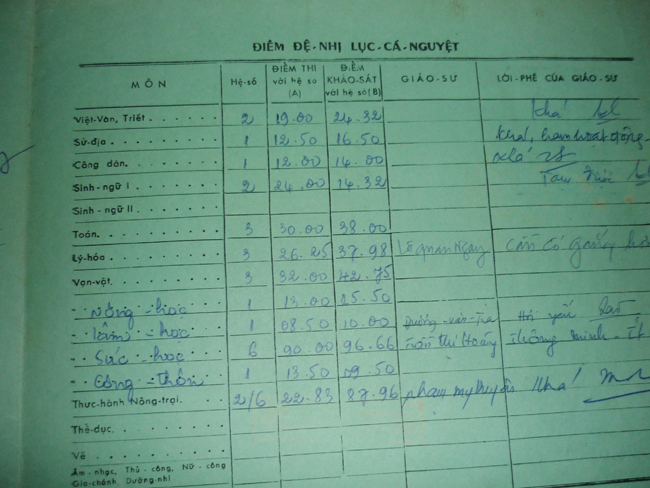 ĐIỂM ĐỆ-NHỊ LỤC-CÁ-NGUYỆT
MÔN Hệ-số ĐIỂM THI với hệ số (A) ĐIỂM KHẢO-SÁT với hệ số (B) GIÁO-SƯ LỜI-PHÊ CỦA GIÁO-SƯ
Việt-Văn, Triết 2 19.00 24.32 Khá
Sử-địa 1 12.50 16.50 khá,
Công dân 1 12.00 14.00 khá
Sinh-ngữ I 2 24.00 14.32
Sinh-ngữ II
Toán 3 30.00 38.00
Lý-hóa 3 26.25 37.98 cần cố gắng
Vạn-vật 3 32.00 42.75
Nông-học 1 13.00 15.50
Lâm-học 1 08.50 10.00
Súc-học 6 90.00 96.66 Trần thị Hoàng thông minh
Công-thôn 1 13.50 09.50
Thực-hành Nông-trại 2/6 22.83 87.96 Khá
Thể-dục
Vẽ
Âm-nhạc, Thủ-công, Nữ-công
Gia-chánh Dưỡng-nhi